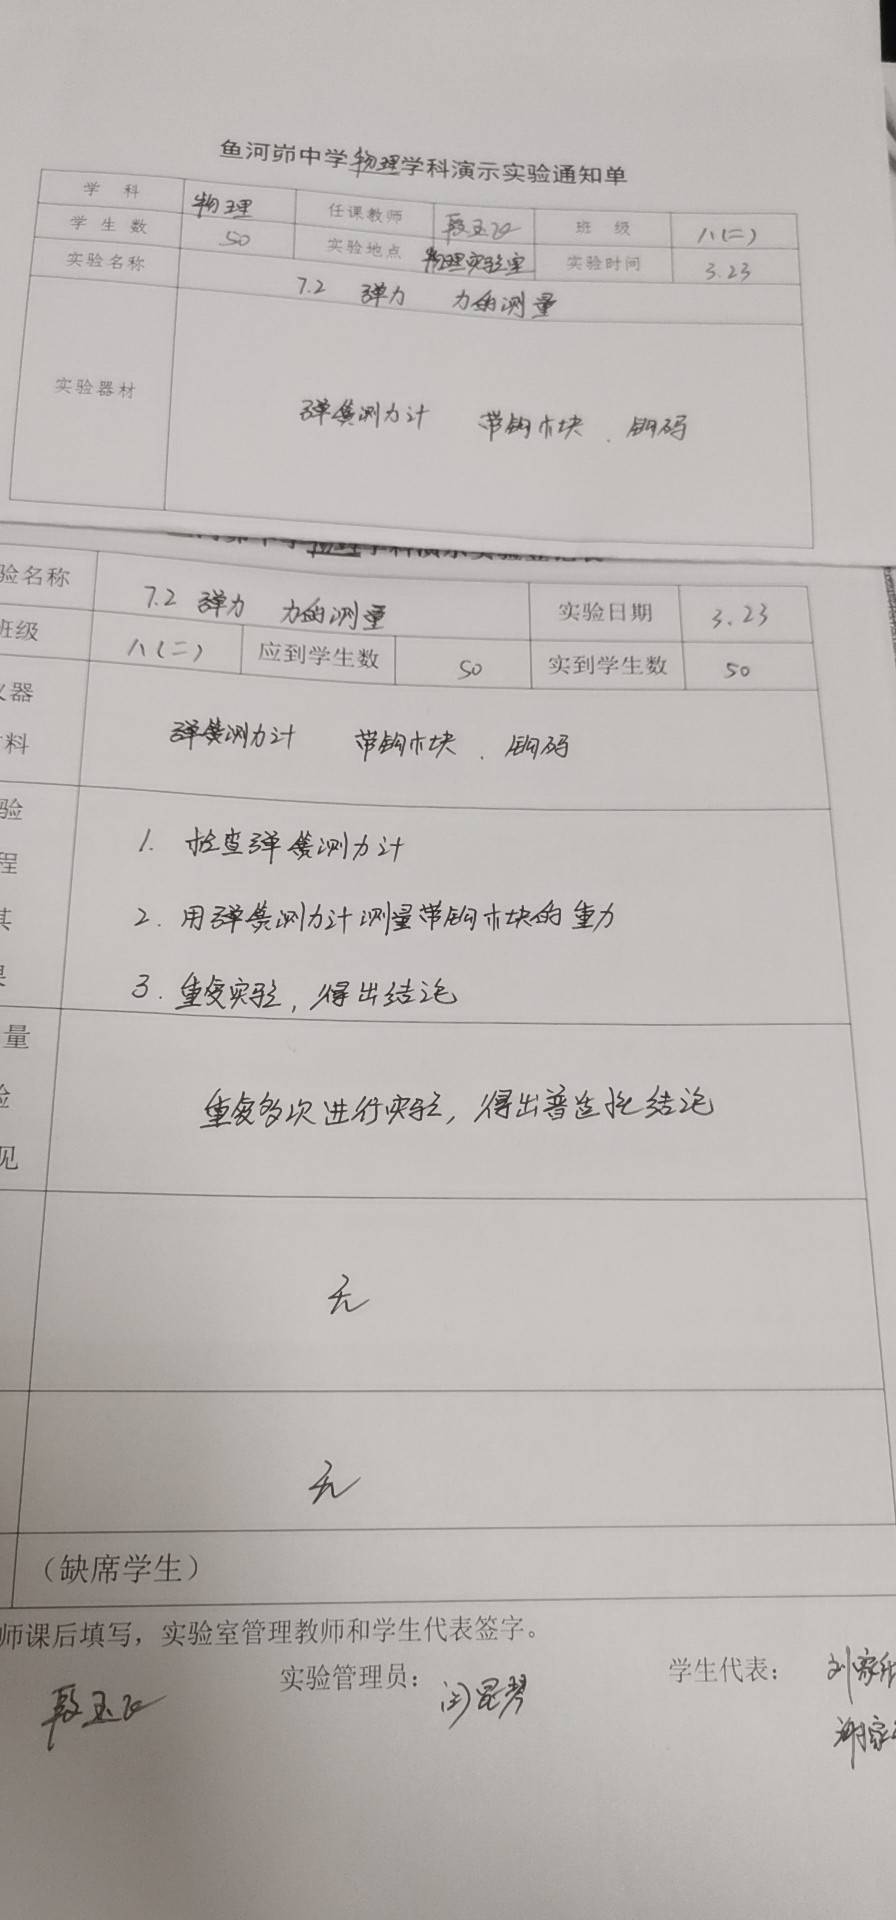 鱼河峁中学物理学科演示实验通知单
学 科 物理 任课教师 段玉飞 班 级 八(二)
学 生 数 50 实验地点 物理实验室 实验时间 3.23
实验名称 7.2 弹力 力的测量
实验器材 弹簧测力计 带钩木块、钩码
验名称 7.2 弹力 力的测量 实验日期 3.23
班级 八(二) 应到学生数 50 实到学生数 50
仪器
材料 弹簧测力计 带钩木块、钩码
验
程
其
果
1. 检查弹簧测力计
2. 用弹簧测力计测量带钩木块的重力
3. 重复实验,得出结论
量
验
见
重复多次进行实验,得出普遍性结论
无
无
(缺席学生)
师课后填写,实验室管理教师和学生代表签字。
段玉飞 实验管理员: 闫昆琴 学生代表: 刘家
谢家